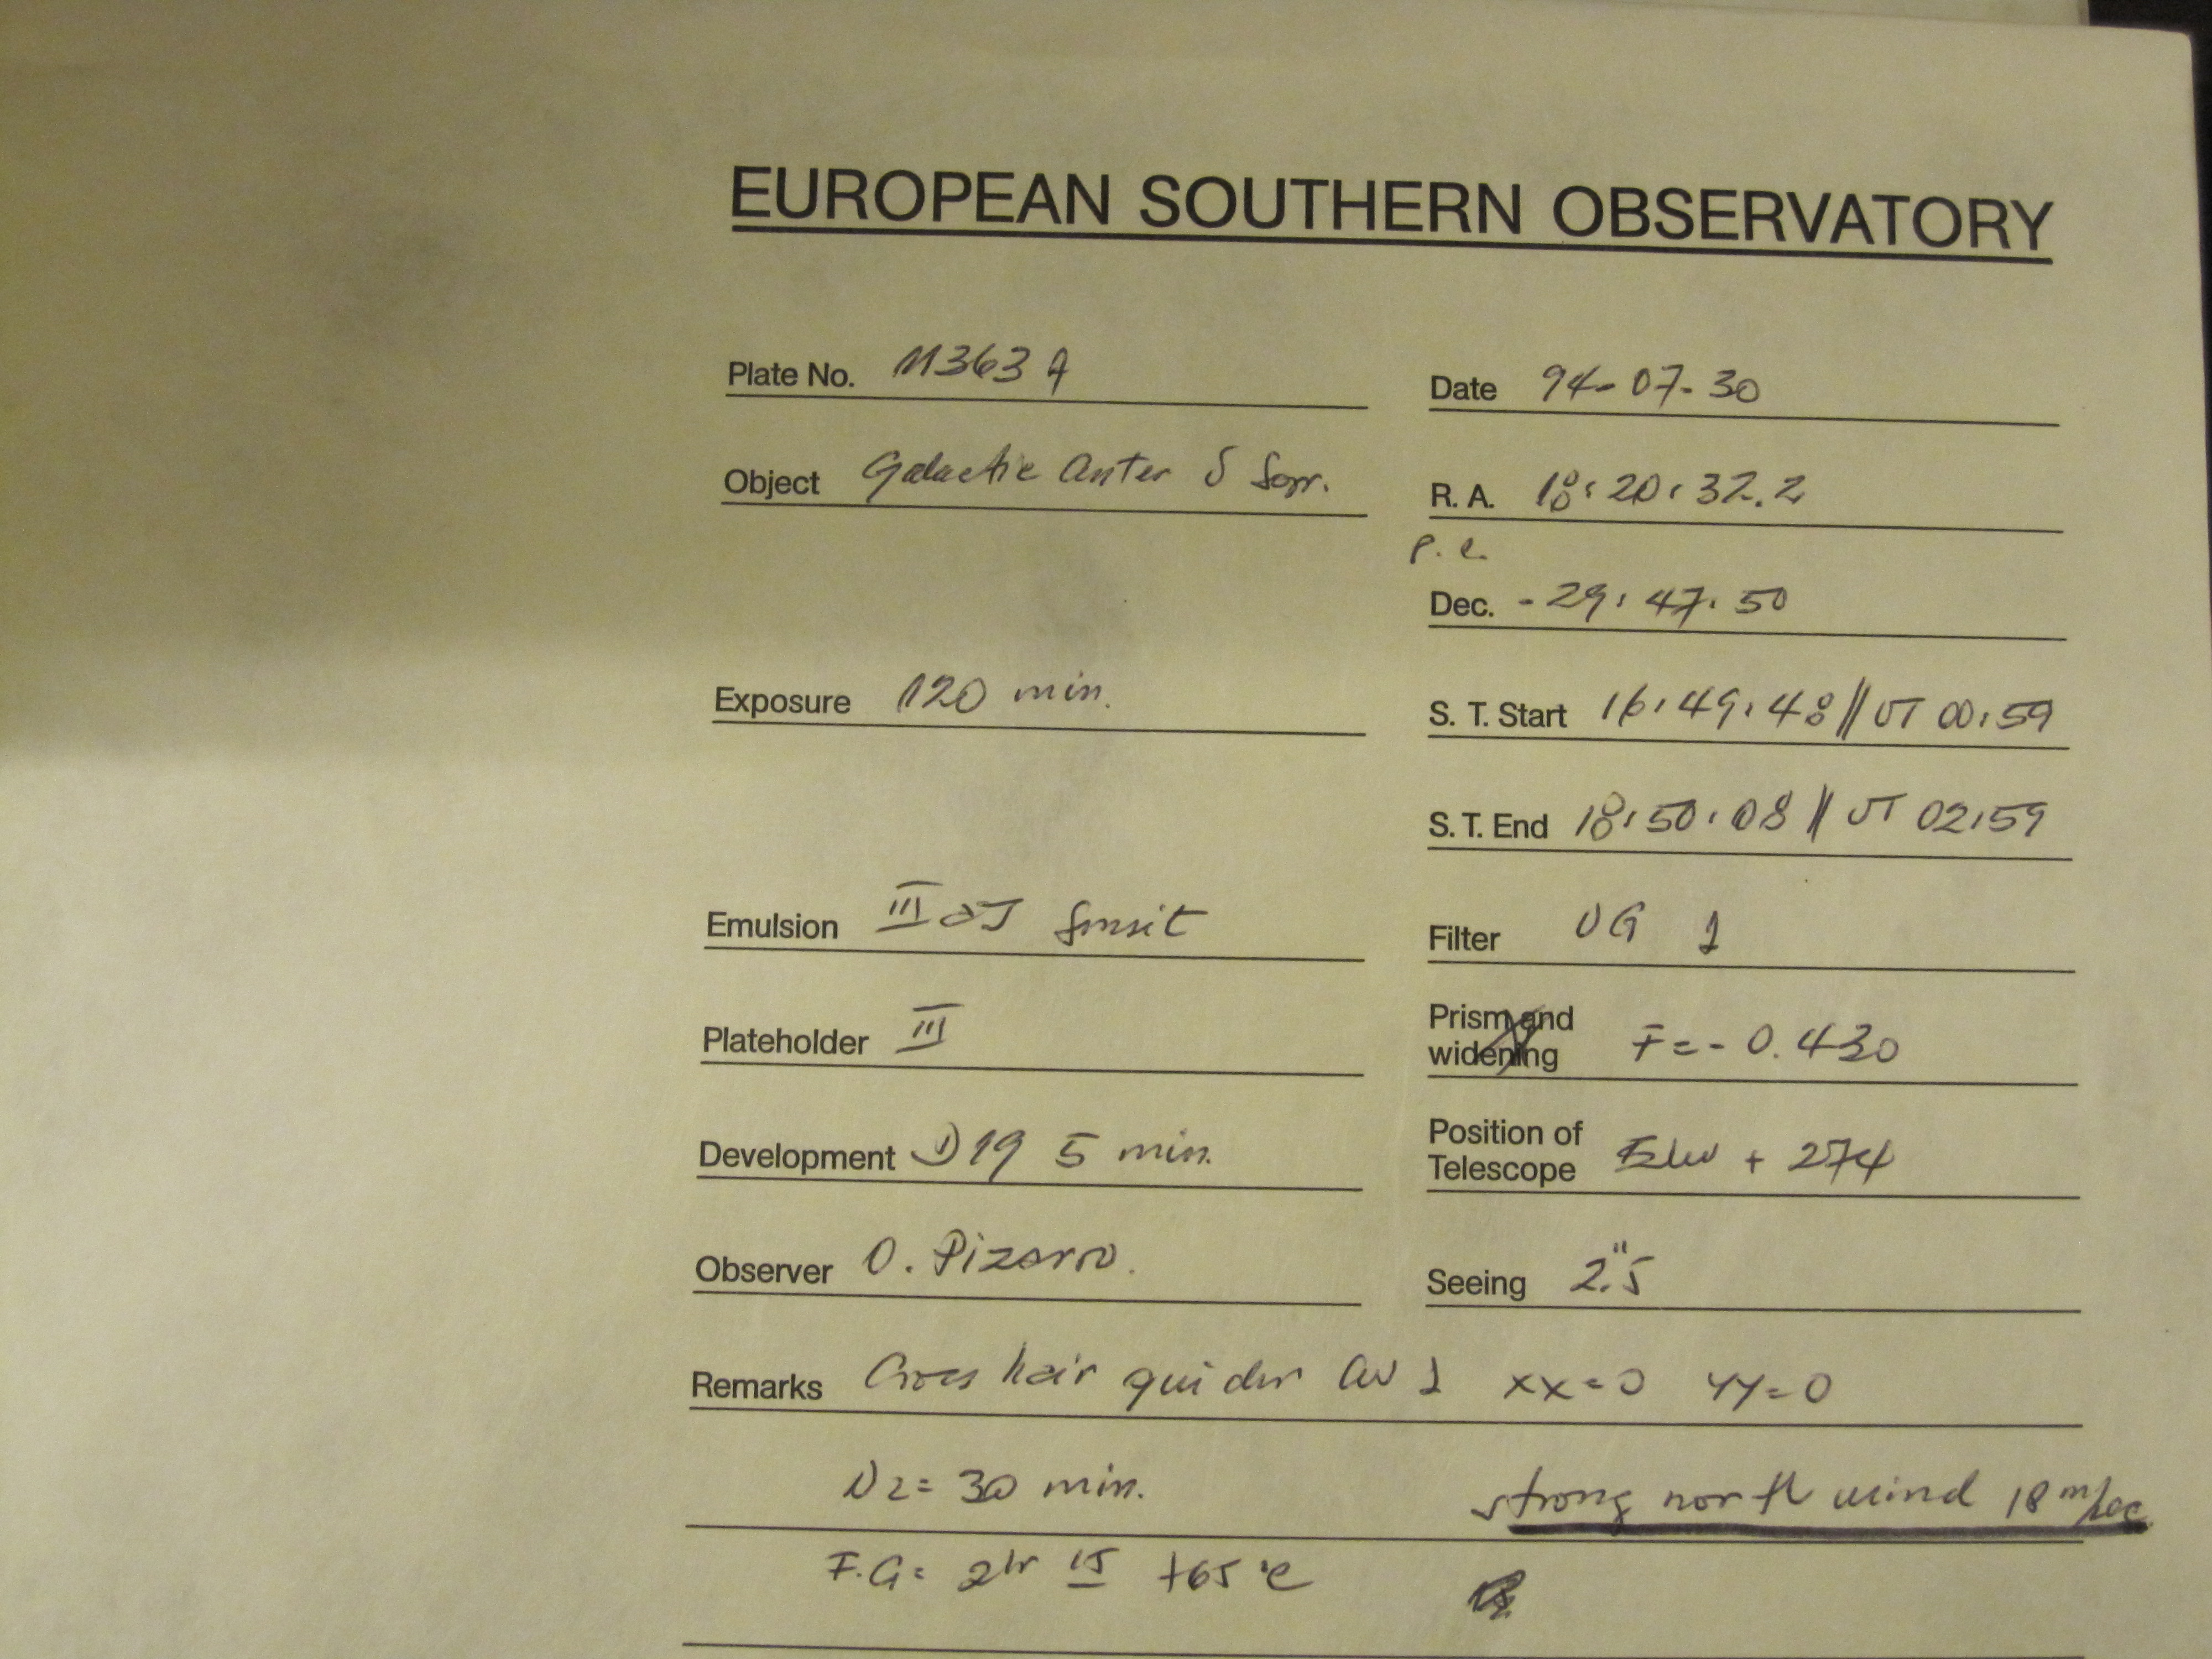 EUROPEAN SOUTHERN OBSERVATORY
Plate No. 11363 A
Date 94-07-30
Object Galactic Center δ
R. A. 18:20:32.2
p. e.
Dec. -29:47:50
Exposure 120 min.
S. T. Start 16:49:48 // UT 00:59
S. T. End 18:50:08 // UT 02:59
Emulsion III aJ Sensit
Filter UG 1
Plateholder III
Prism and widening F = - 0.430
Development D19 5 min.
Position of Telescope + 274
Observer O. Pizarro.
Seeing 2."5
Remarks Cross hair guider CW 1 xx=0 yy=0
N2= 30 min. strong north wind 18 m/sec
F.G= 2hr 15 +65 °C